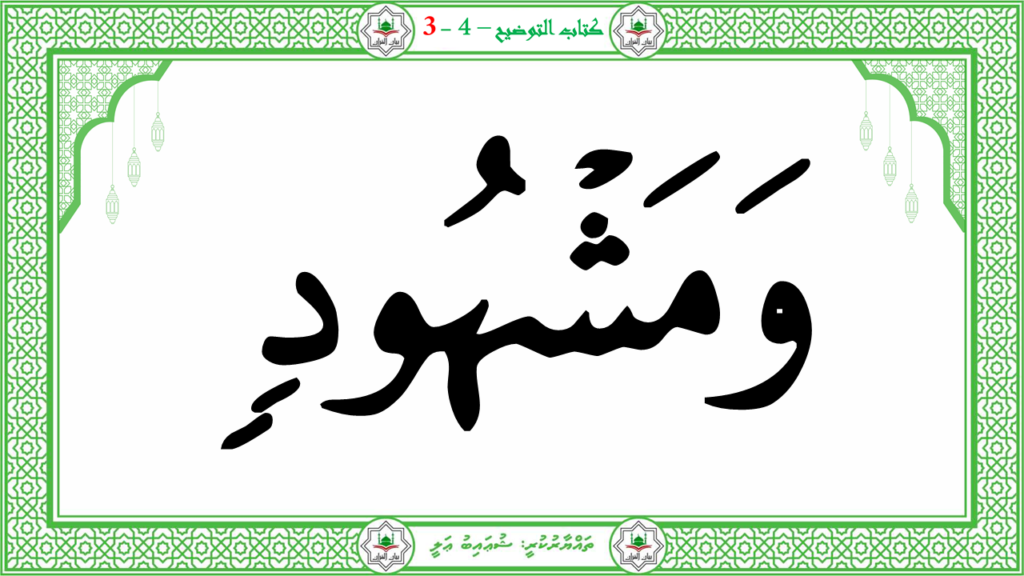 كتاب التوضيح – 4 - 3
وَمَشْهُودٍ
ތައްޔާރުކުރީ: ޝުޢައިބު ޢަލީ